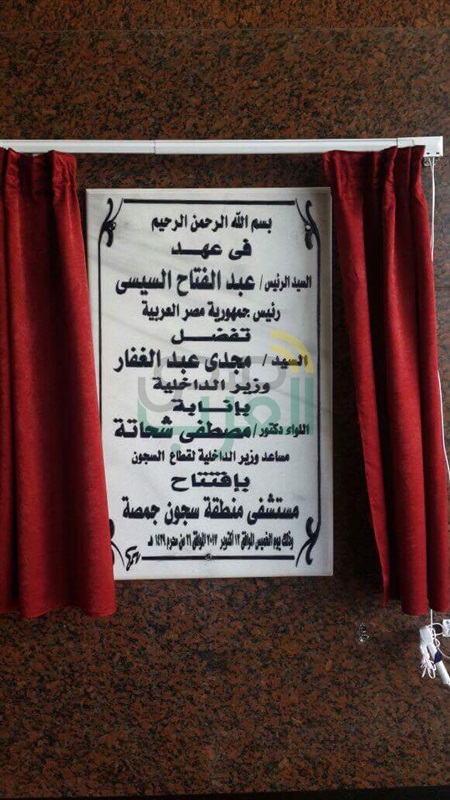 بسم الله الرحمن الرحيم
فى عهد
السيد الرئيس / عبد الفتاح السيسى
رئيس جمهورية مصر العربية
تفضل
السيد / مجدى عبد الغفار
وزير الداخلية
بإنابة
اللواء دكتور / مصطفى شحاتة
مساعد وزير الداخلية لقطاع السجون
بإفتتاح
مستشفى منطقة سجون جمصة
وذلك يوم الخميس الموافق ١٢ أكتوبر ٢٠١٧ الموافق ٢١ من محرم ١٤٣٩ هـ